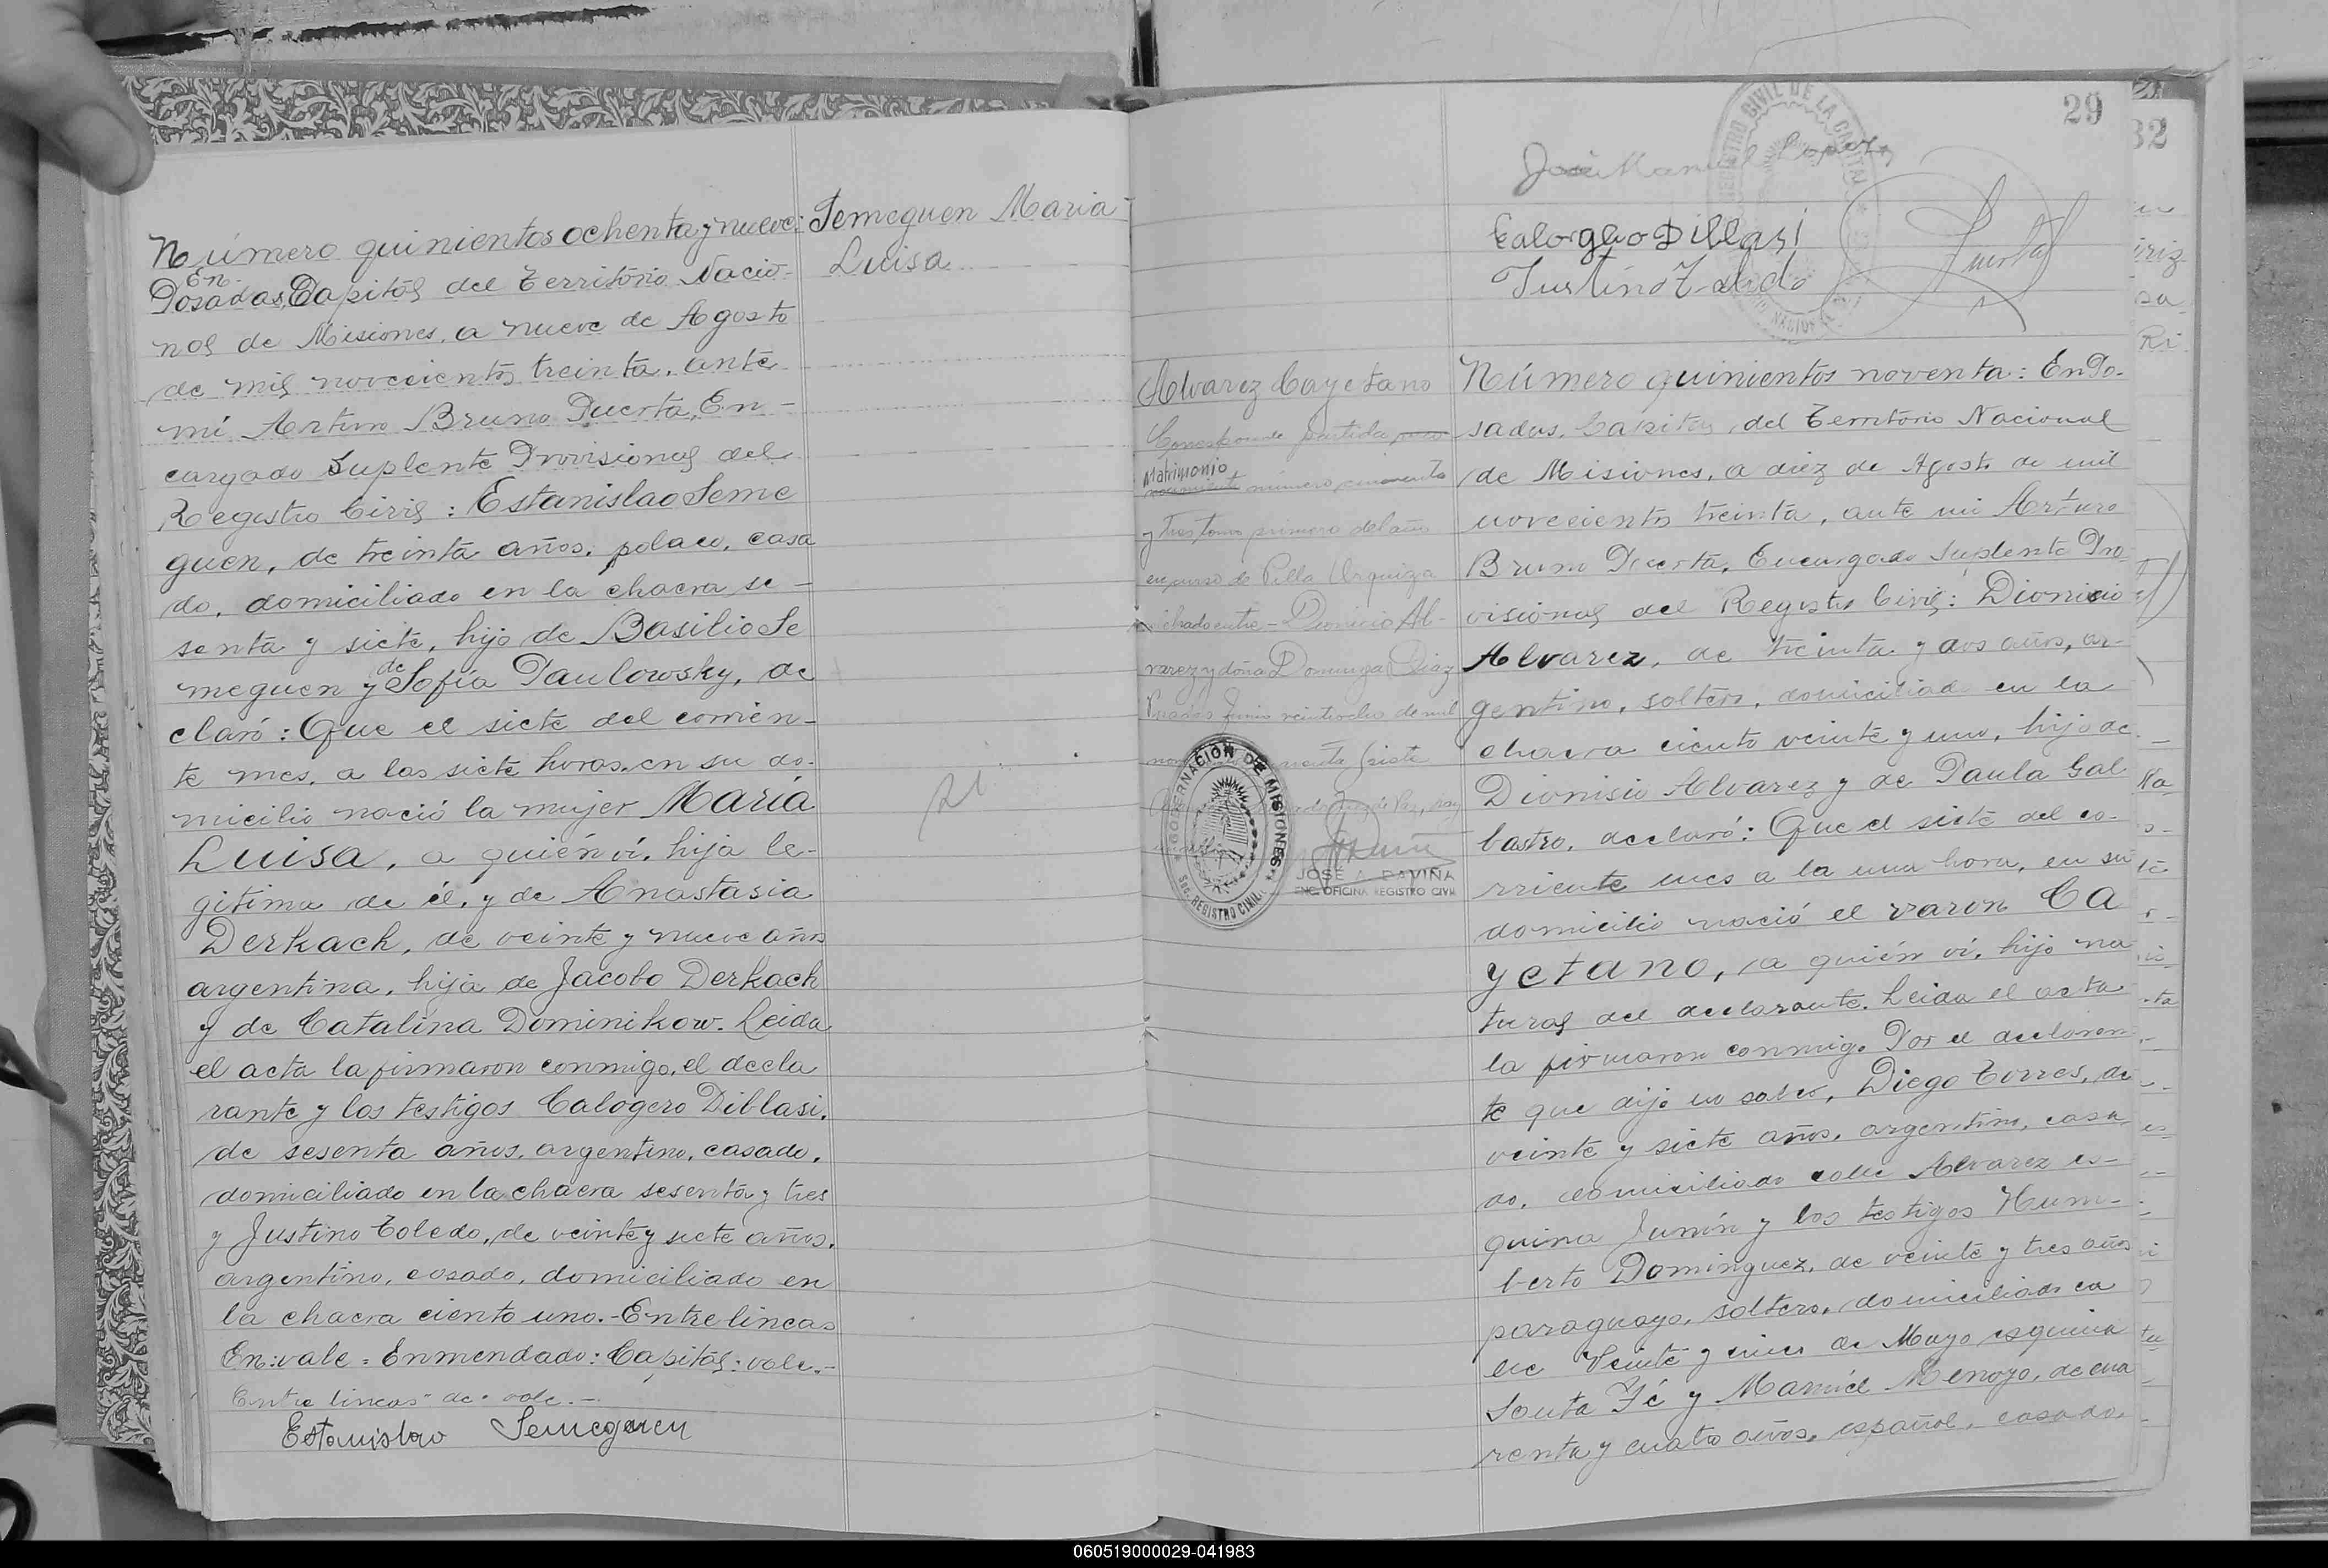 Número quinientos ochenta y nueve:
En
Posadas, Capital del Territorio Nacio-
nal de Misiones, a nueve de Agosto
de mil novecientos treinta, ante
mi Arturo Bruno Puerta, En-
cargado Suplente Provisional del
Registro Civil: Estanislao Seme
guen, de treinta años, polaco, casa
do, domiciliado en la chacra se-
senta y siete, hijo de Basilio Se
meguen y de Sofía Paulowsky, de
claró: Que el siete del corrien-
te mes, a las siete horas, en su do-
micilio nació la mujer María
Luisa, a quién ví, hija le-
gitima de él, y de Anastasia
Derkach, de veinte y nueve años
argentina, hija de Jacobo Derkach
y de Catalina Dominikow. Leida
el acta la firmaron conmigo, el decla
rante y los testigos Calogero Diblasi,
de sesenta años, argentino, casado,
domiciliado en la chacra sesenta y tres
y Justino Toledo, de veinte y siete años,
argentino, casado, domiciliado en
la chacra ciento uno.-Entre lineas
En: vale = Enmendado: Capital: vale.-
Entre lineas "de" vale.-
Estanislao Semeguen
Semeguen Maria
Luisa
29
32
José Manuel Lopez
Calogero Dillasi
Justino Toledo
Puerta
REGISTRO CIVIL DE LA CAPITAL
Alvarez Cayetano
Corresponde partida
Matrimonio
nacimiento número cincuenta
y tres tomo primero del año
en curso de Villa Urquiza
entre - Dionicio Al-
varez y doña Dominga Diaz
Posadas Junio veintiocho de mil
siete
GOBERNACION DE MISIONES
REGISTRO CIVIL
JOSE A. DAVIÑA
ENC. OFICINA REGISTRO CIVIL
Número quinientos noventa: En Po-
sadas, Capital, del Territorio Nacional
de Misiones, a diez de Agosto de mil
novecientos treinta, ante mi Arturo
Bruno Puerta, Encargado Suplente Pro
visional del Registro Civil: Dionicio
Alvarez, de treinta y dos años, ar-
gentino, soltero, domiciliado en la
chacra ciento veinte y uno, hijo de
Dionisio Alvarez y de Paula Gal
bastro, declaró: Que el siete del co-
rriente mes a la una hora, en su
domicilio nació el varon Ca
yetano, a quién ví, hijo na
tural del declarante. Leida el acta
la firmaron conmigo. Por el declaran
te que dijo no saber, Diego Torres, de
veinte y siete años, argentino, casa
do, domiciliado calle Alvarez es-
quina Junín y los testigos Hum-
berto Dominguez, de veinte y tres años
paraguayo, soltero, domiciliado ca
lle Veinte y cinco de Mayo esquina
Santa Fé y Manuel Menoyo, de cua
renta y cuatro años, español, casado,
060519000029-041983